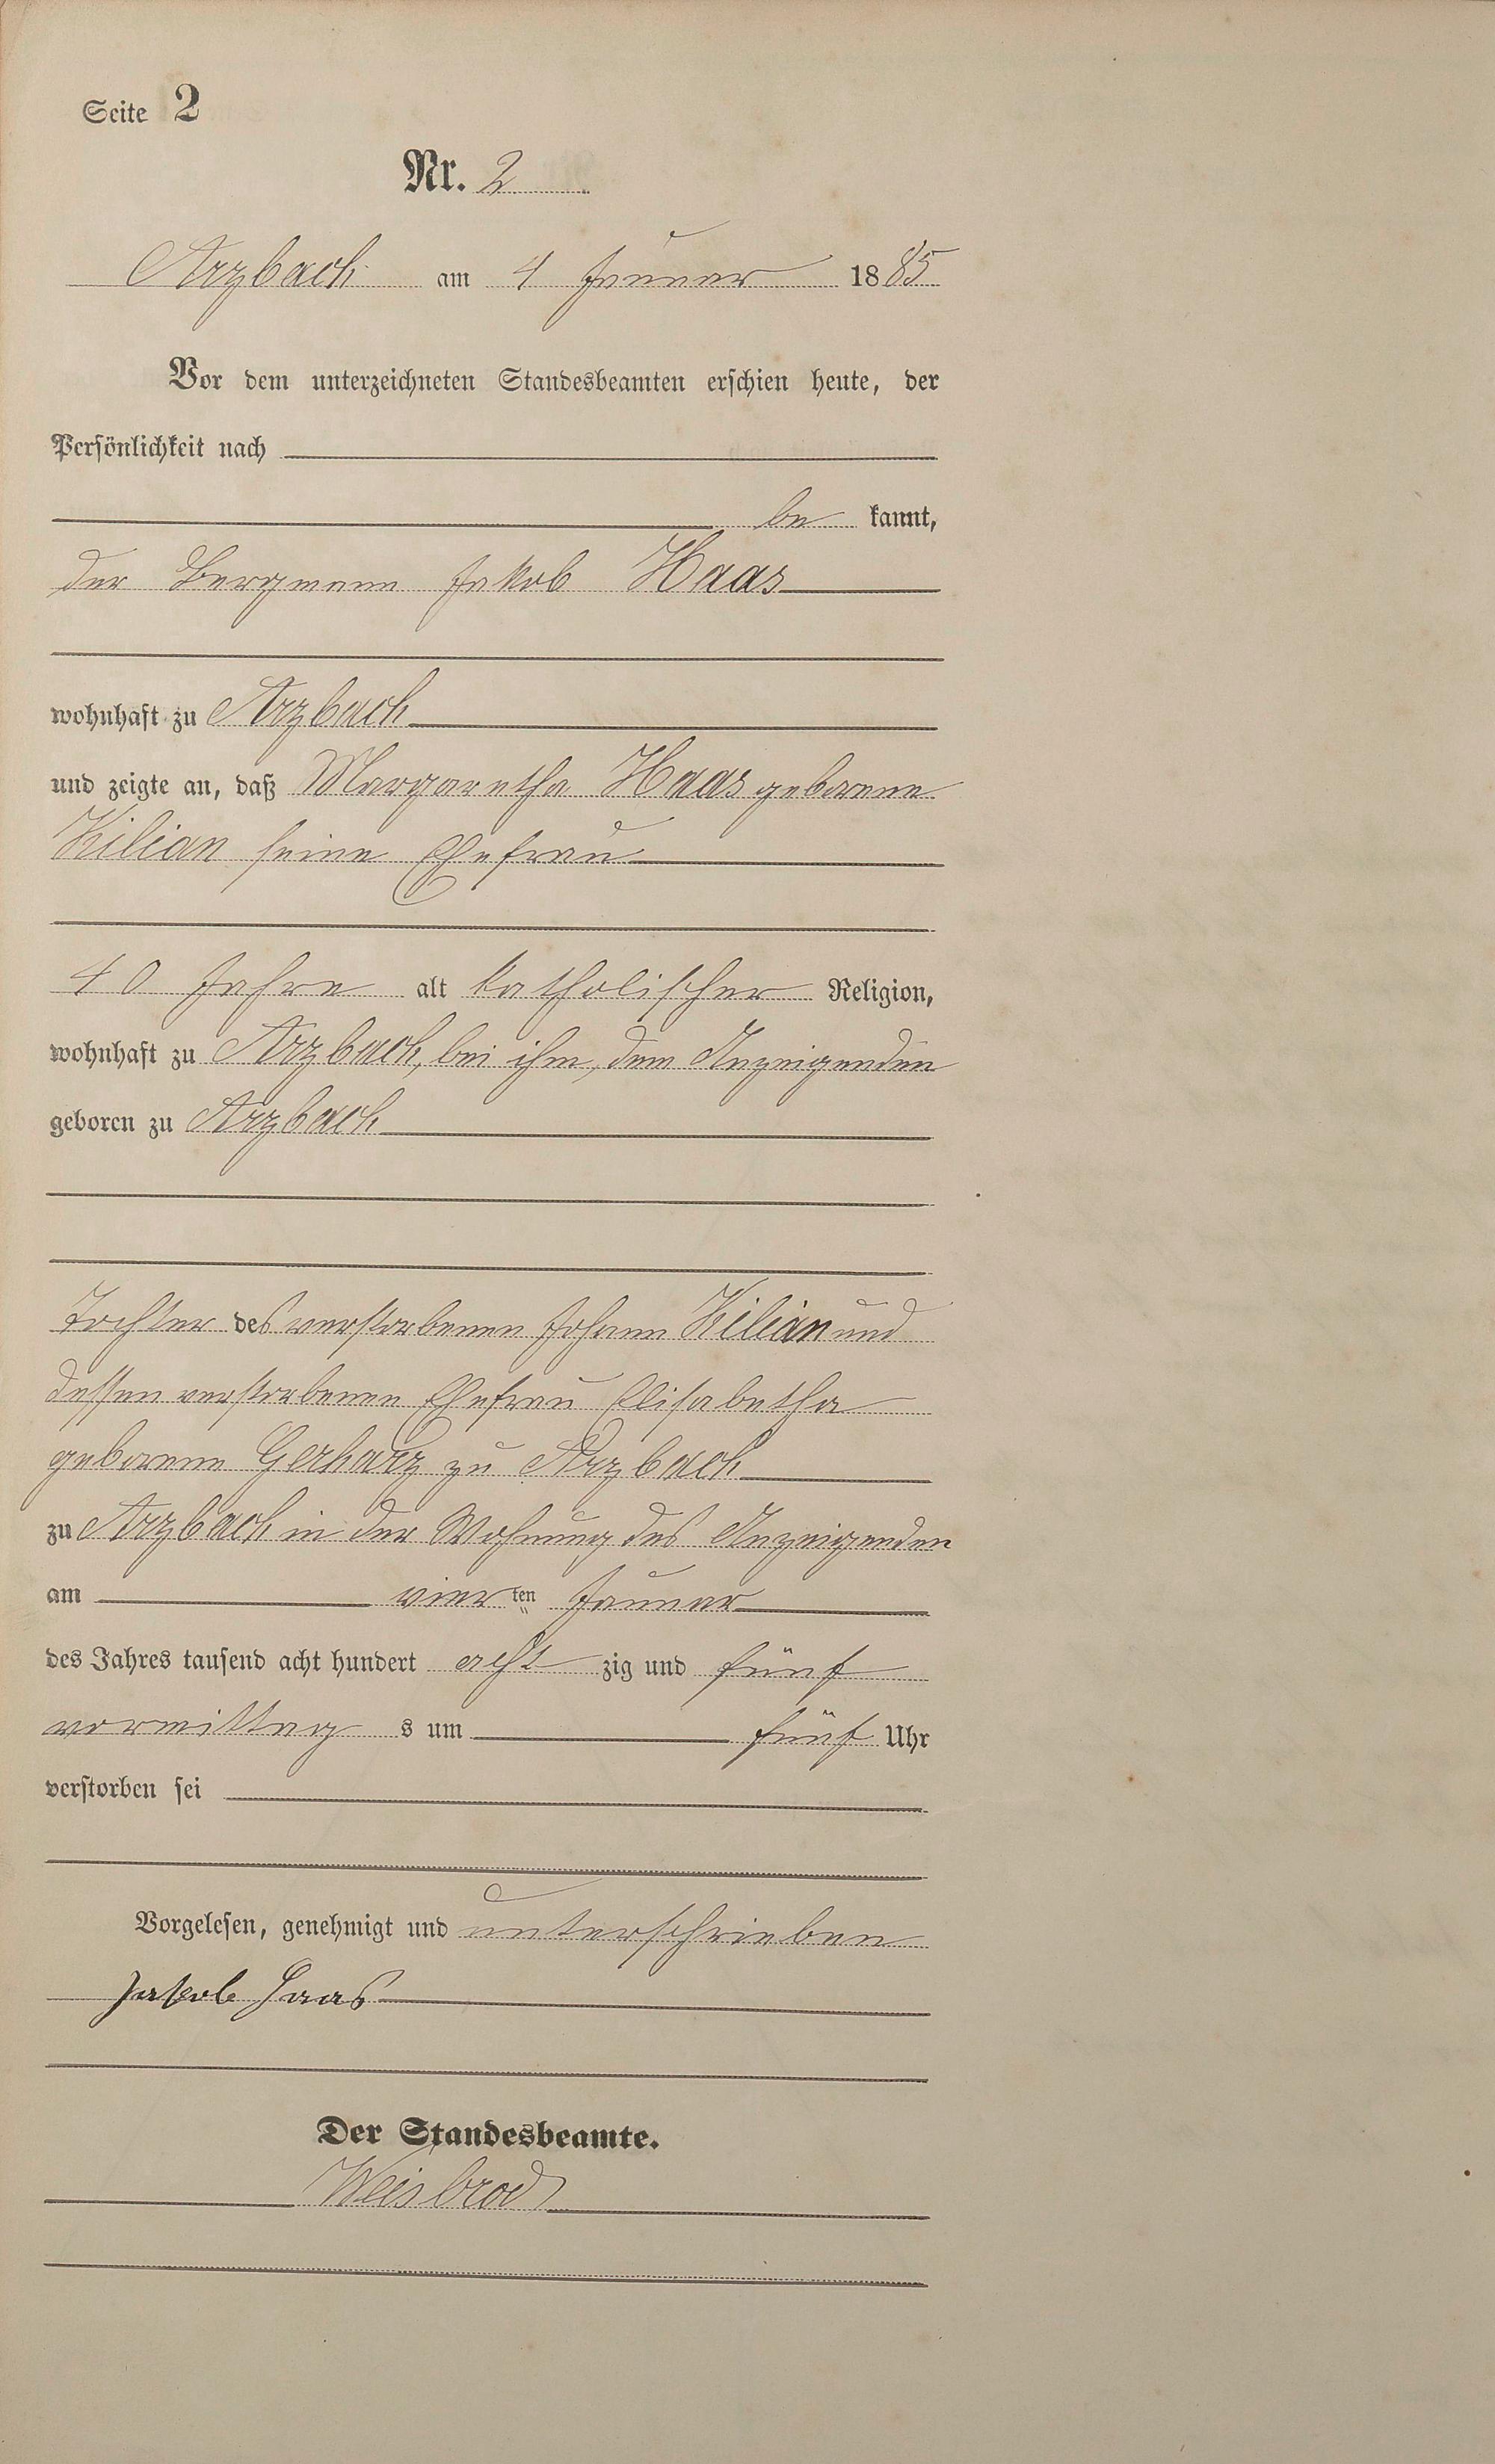 Seite 2
Nr. 2
Arzbach am 4 Januar 1885
Vor dem unterzeichneten Standesbeamten erschien heute, der
Persönlichkeit nach
be kannt,
der Bergmann Jakob Haas
wohnhaft zu Arzbach
und zeigte an, daß Margaretha Haas geborene
Kilian seine Ehefrau
40 Jahre alt katholischer Religion,
wohnhaft zu Arzbach, bei ihm, dem Anzeigenden
geboren zu Arzbach
Tochter des verstorbenen Johann Kilian und
dessen verstorbenen Ehefrau Elisabetha
geborene Gerharz zu Arzbach
zu Arzbach in der Wohnung des Anzeigenden
am vier ten Januar
des Jahres tausend acht hundert acht zig und fünf
vormittag s um fünf Uhr
verstorben sei
Vorgelesen, genehmigt und unterschrieben
Jakob Haas
Der Standesbeamte.
Weisbrod